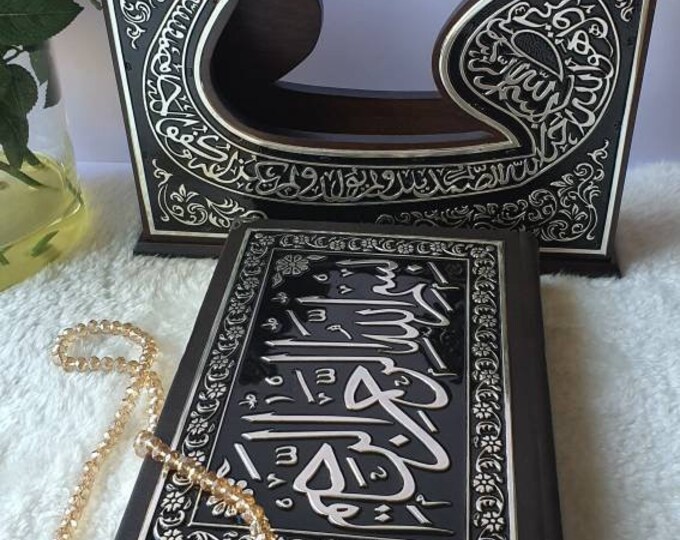 قل هو الله احد
الله الصمد لم يلد ولم يولد ولم يكن له كفوا احد
بسم الله الرحمن الرحيم